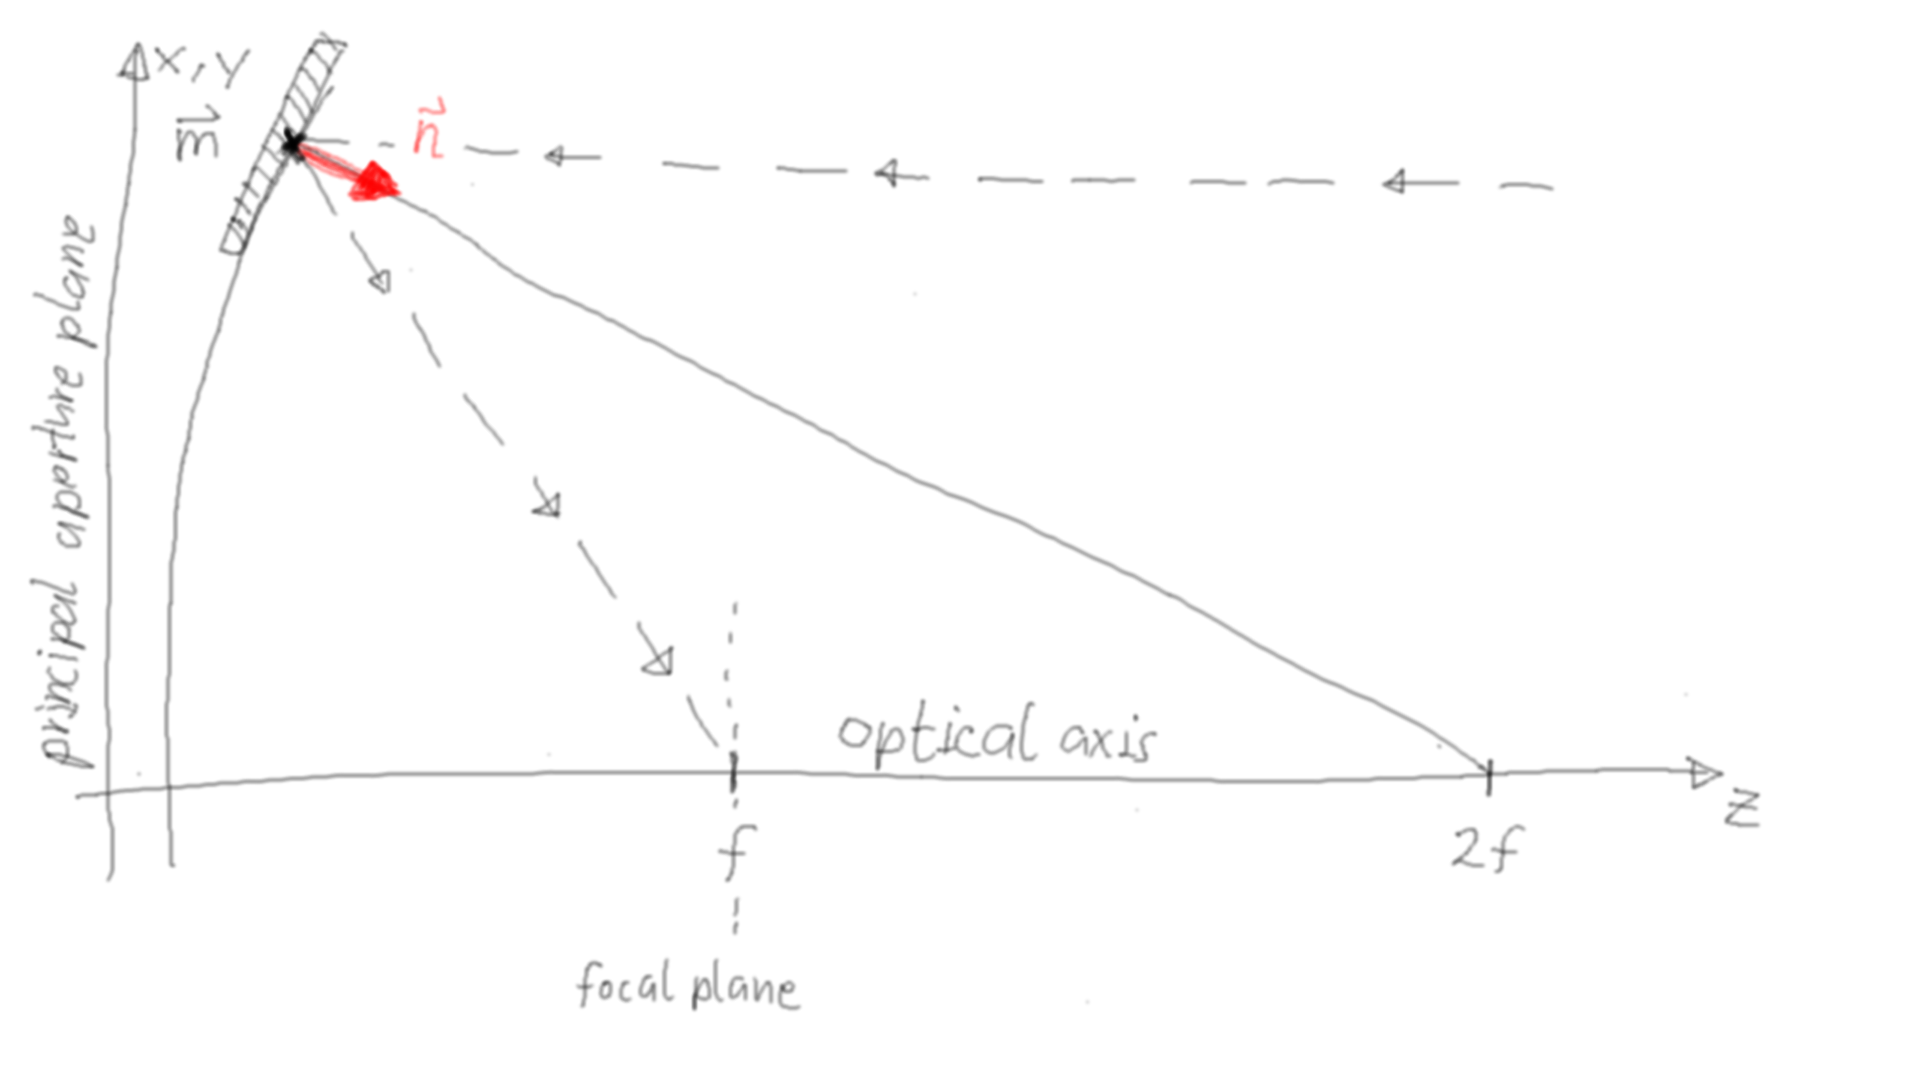 x, y
m⃗
ñ
principal aperture plane
optical axis
z
f
2f
focal plane